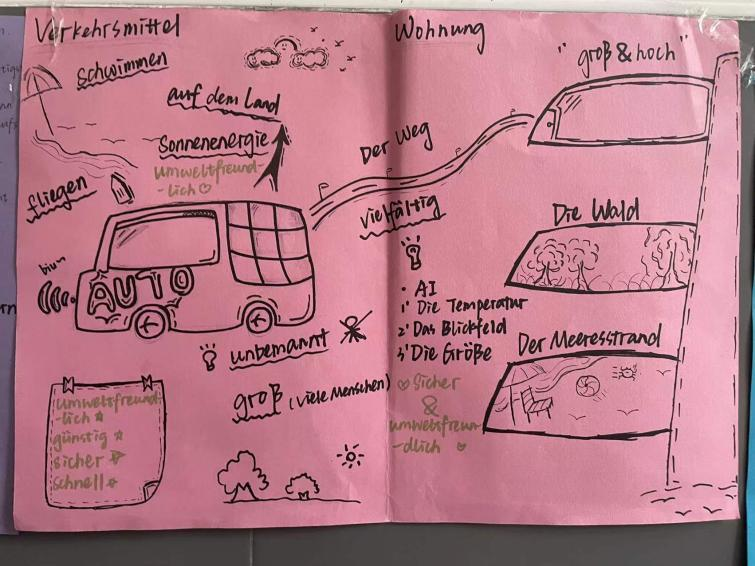 Verkehrsmittel
schwimmen
auf dem Land
Sonnenenergie
umweltfreund-
-lich
fliegen
biu~
AUTO
unbemannt
groß (viele Menschen)
umweltfreund-
-lich
günstig
sicher
schnell
Wohnung
"groß & hoch"
Der Weg
vielfältig
Die Wald
· AI
1' Die Temperatur
2' Das Blickfeld
3' Die Größe
Der Meeresstrand
Sicher
&
umweltsfreun-
-dlich